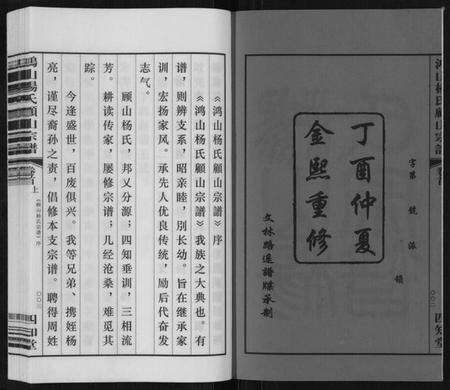 鸿山杨氏顾山宗谱
卷首
〇〇二
四知堂
字第 號 派 領
丁酉仲夏
金熙重修
文林路逵谱牒承制
《鸿山杨氏顾山宗谱》序
《鸿山杨氏顾山宗谱》我族之大典也。有
谱,则辨支系,昭亲睦,别长幼。旨在继承家
训,宏扬家风。承先人优良传统,励后代奋发
志气。
顾山杨氏,邦乂分源;四知垂训,三相流
芳。耕读传家,屡修宗谱;几经沧桑,难觅其
踪。
今逢盛世,百废俱兴。我等兄弟、携姪杨
亮,谨尽裔孙之责,倡修本支宗谱。聘得周姓
鸿山杨氏顾山宗谱
卷首上
《鸿山杨氏宗谱》序
〇〇三
四知堂